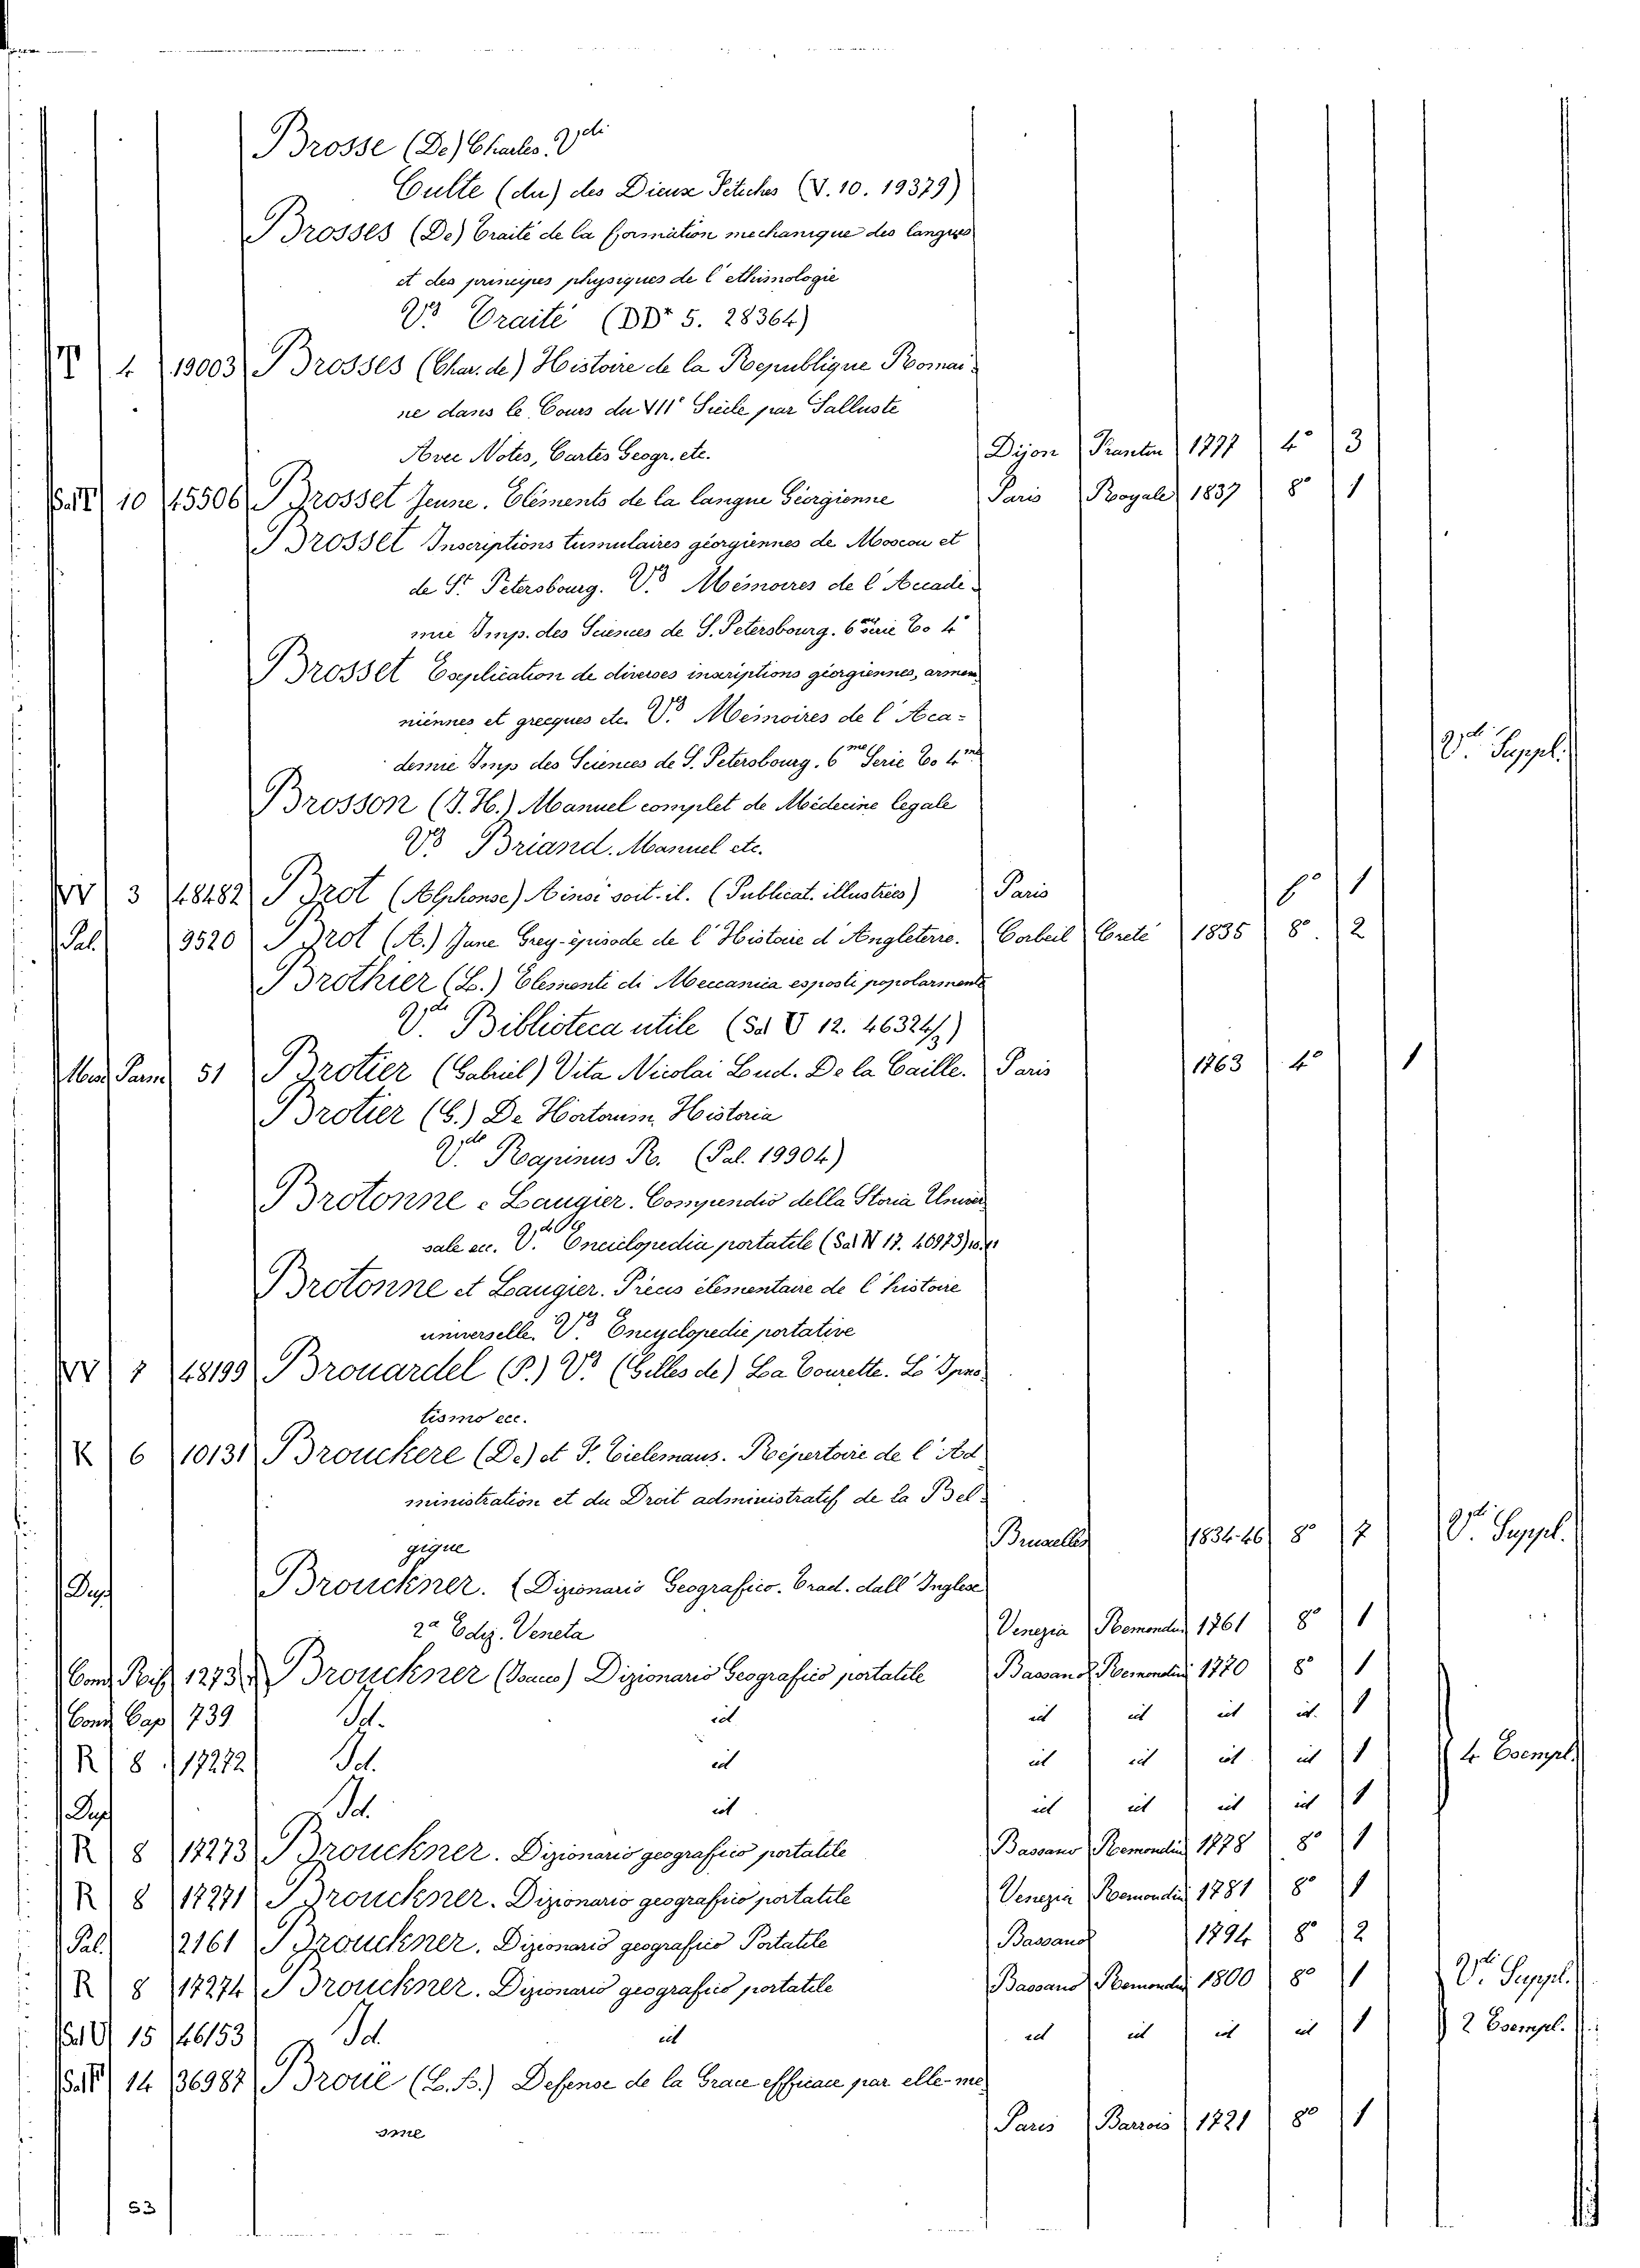 Brosse (De) Charles. Vdi
Culte (du) des Dieux Fetiches (V. 10. 19379)
Brosses (De) Traité de la formation mechanique des langues
et des principes physiques de l'ethimologie
Vdi Traité (DDr 5. 28364)
4 19003 Brosses (Char. de) Histoire de la Republique Romai-
ne dans le Cours du VII Siecle par Salluste
Avec Notes, Cartes Geogr. etc. Dijon Frantin 1777 4° 3
10 45506 Brosset Jeune. Eléments de la langue Géorgienne Paris Royale 1837 8° 1
Brosset Inscriptions tumulaires géorgiennes de Moscou et
de St. Petersbourg. Vdi Mémoires de l'Accadé-
mie Imp. des Sciences de S. Petersbourg. 6me Série To 4°
Brosset Explication de diverses inscriptions géorgiennes, armen
niénnes et grecques etc. Vdi Mémoires de l'Aca-
demie Imp des Sciences de S. Petersbourg. 6me Serie To 4me Vdi Suppl.
Brosson (J. H.) Manuel complet de Médecine legale
Vdi Briand. Manuel etc.
3 48482 Brot (Alphonse) Ainsi soit-il. (Publicat. illustrées) Paris 1
Pal. 9520 Brot (A.) Jane Grey-épisode de l'Histoire d'Angleterre. Corbeil Creté 1835 8°. 2
Brothier (L.) Elementi di Meccanica esposti popolarmente
Vdi Biblioteca utile (Sa V 12. 46324/3)
51 Brotier (Gabriel) Vita Nicolai Lud. De la Caille. Paris 1763 4° 1
Brotier (G.) De Hortorum Historia
Vde Rapinus R. (Pal. 19904)
Brotonne e Laugier. Compendio della Storia Univer
sale ecc. Vde Enciclopedia portatile (Sal N 17. 46973)
Brotonne et Laugier. Précis élementaire de l'histoire
universelle. Vdi Encyclopedie portative
48199 Brouardel (P.) Vdi (Gilles de) La Tourette. L'Ipno
tismo ecc.
K 6 10131 Brouckere (De) et F. Tielemans. Répertoire de l'Ad
ministration et du Droit administratif de la Bel-
gique Bruxelles 1834-46 8° 7 Vdi Suppl.
Dup Brouckner. (Dizionario Geografico. Trad. dall'Inglese
2a Ediz. Veneta Venezia Remondin 1761 8° 1
1273 Brouckner (Isacco) Dizionario Geografico portatile Bassano Remondini 1770 8° 1
Conv Cap 739 Id. id id id id id. 1
R 8 17272 Id. id id id id id 1 4 Esempl.
Dup Id. id id id id id 1
R 8 17273 Brouckner. Dizionario geografico portatile Bassano Remondini 1778 8° 1
R 8 17271 Brouckner. Dizionario geografico portatile Venezia Remondini 1781 8° 1
Pal. 2161 Brouckner. Dizionario geografico Portatile Bassano 1794 8° 2
R 8 17274 Brouckner. Dizionario geografico portatile Bassano Remondin 1800 8° 1 Vdi Suppl.
Sal O 15 46153 Id. id id id id id 1 2 Esempl.
14 36987 Broüé (L. B.) Defense de la Grace efficace par elle-me
sme Paris Barrois 1721 8° 1
53